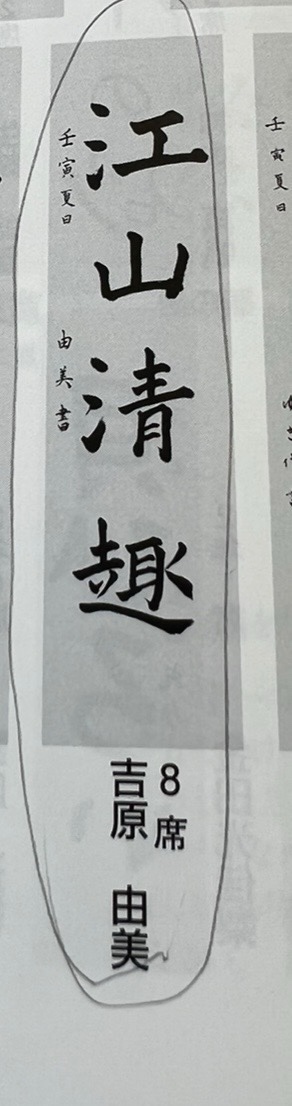 江山清趣
壬寅夏日 由美書
8席
吉原 由美
壬寅夏日